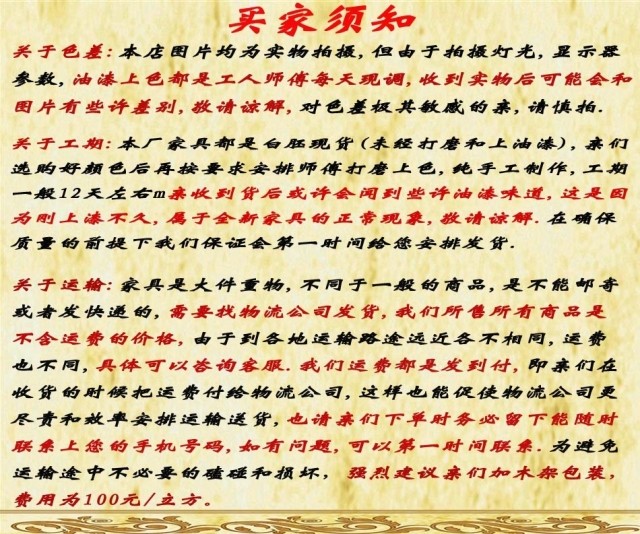 买家须知
关于色差:本店图片均为实物拍摄,但由于拍摄灯光,显示器
参数,油漆上色都是工人师傅每天现调,收到实物后可能会和
图片有些许差别,敬请谅解,对色差极其敏感的亲,请慎拍.
关于工期:本厂家具都是白胚现货(未经打磨和上油漆),亲们
选购好颜色后再按要求安排师傅打磨上色,纯手工制作,工期
一般12天左右m亲收到货后或许会闻到些许油漆味道,这是因
为刚上漆不久,属于全新家具的正常现象,敬请谅解.在确保
质量的前提下我们保证会第一时间给您安排发货.
关于运输:家具是大件重物,不同于一般的商品,是不能邮寄
或者发快递的,需要找物流公司发货,我们所售所有商品是
不含运费的价格,由于到各地运输路途远近各不相同,运费
也不同,具体可以咨询客服.我们运费都是发到付,即亲们在
收货的时候把运费付给物流公司,这样也能促使物流公司更
尽责和效率安排运输送货,也请亲们下单时务必留下能随时
联系上您的手机号码,如有问题,可以第一时间联系.为避免
运输途中不必要的磕碰和损坏,强烈建议亲们加木架包装,
费用为100元/立方。